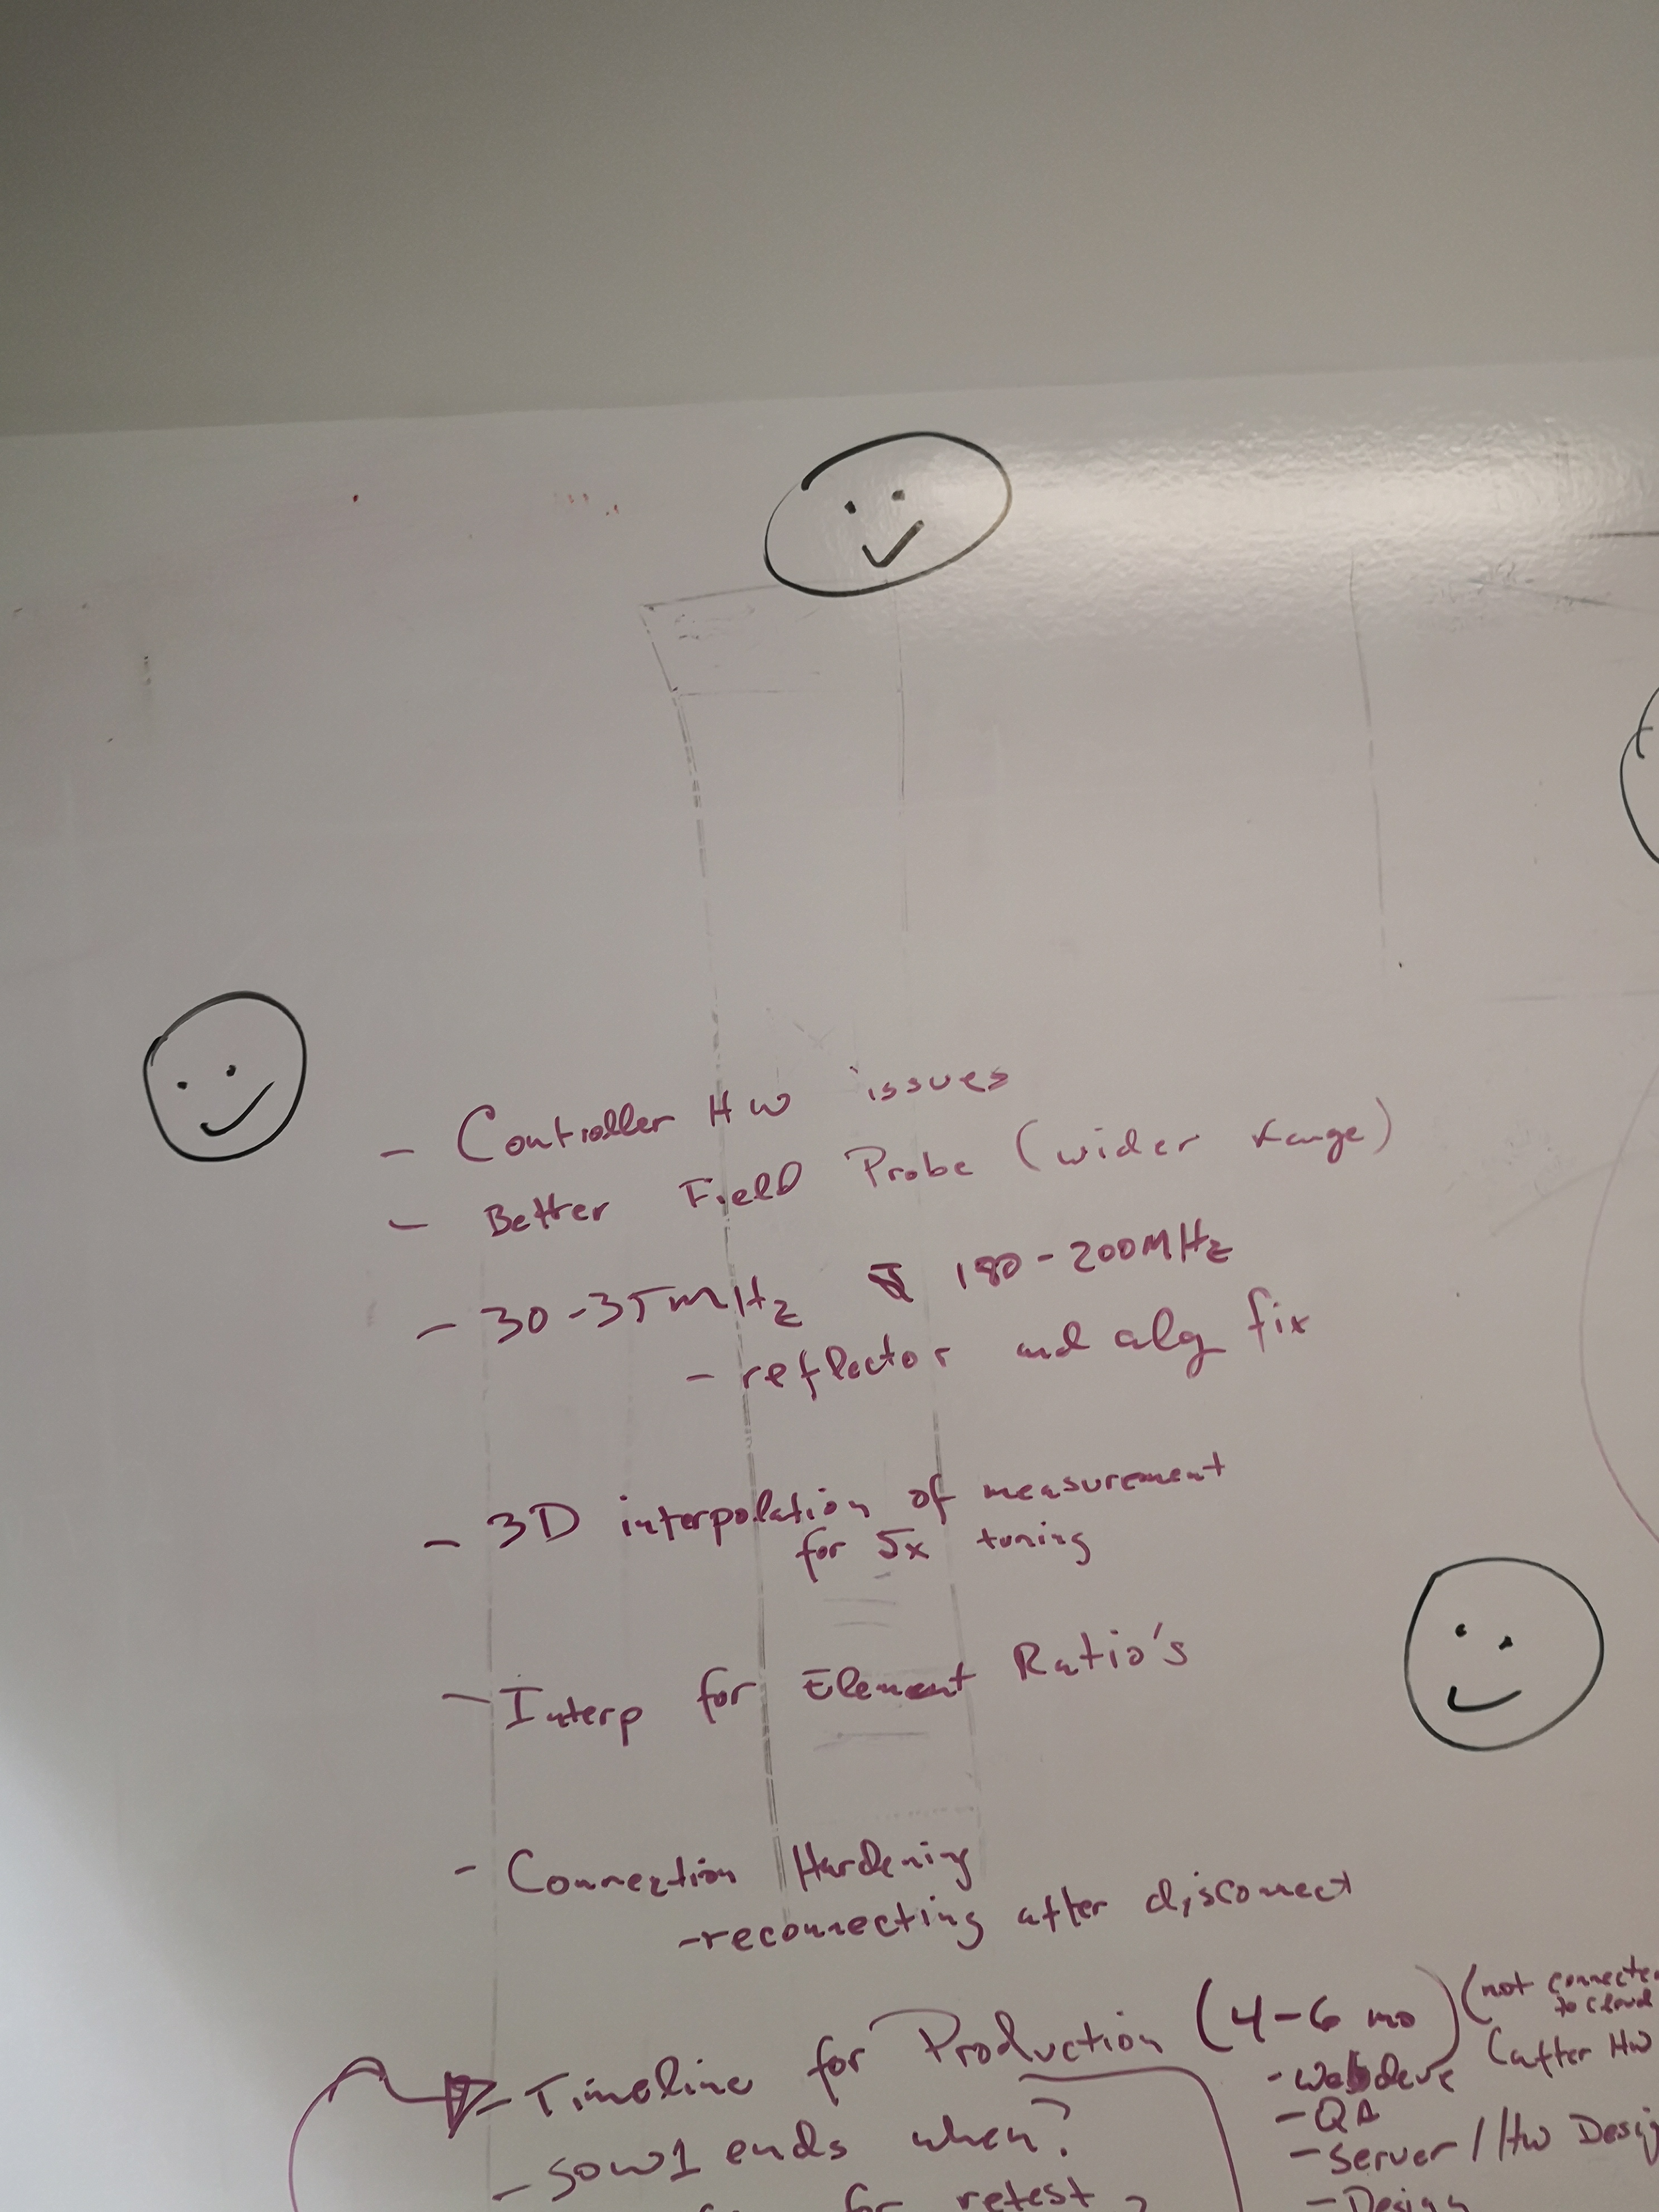 - Controller HW issues
- Better Field Probe (wider range)
- 30-35MHz & 180-200MHz
- reflector and alg fix
- 3D interpolation of measurement
for 5x tuning
- Interp for Element Ratio's
- Connection Hardening
- reconnecting after disconnect
- Timeline for Production (4-6 mo)
(not connected
to cloud
(after HW
- Webdev
- QA
- Server/HW Desig
- Design
- SOW1 ends when?
for retest?